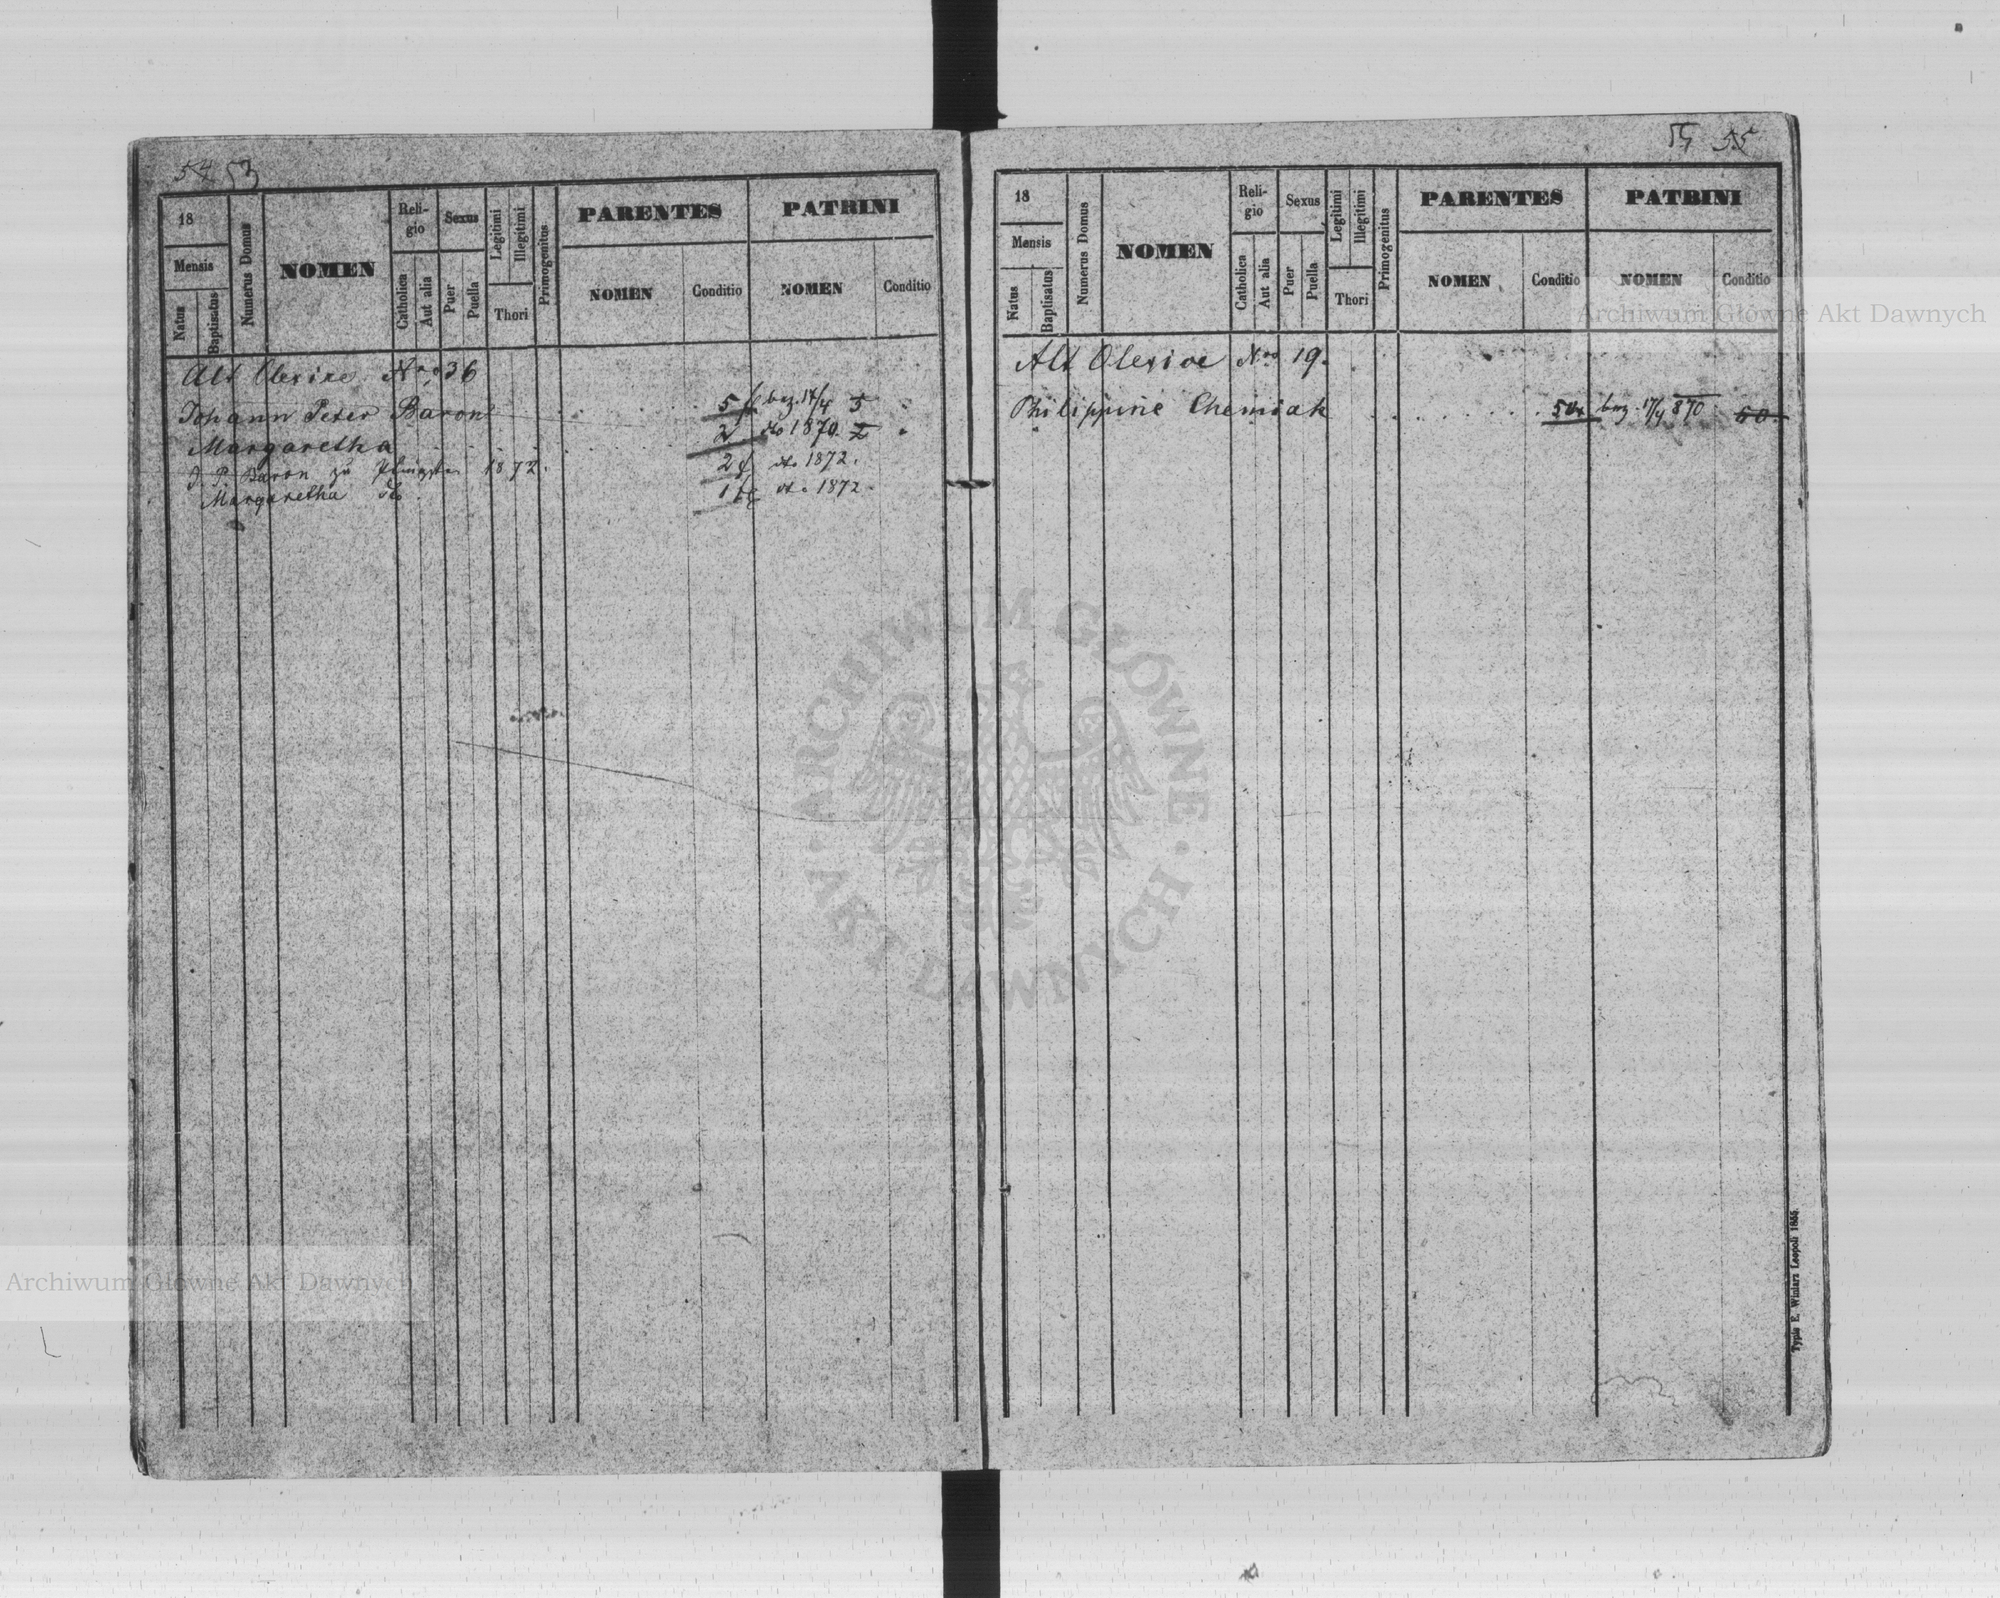 54 53
18
Mensis
Natus
Baptisatus
Numerus Domus
NOMEN
Reli-
gio
Catholica
Aut alia
Sexus
Puer
Puella
Legitimi
Illegitimi
Thori
Primogenitus
PARENTES
NOMEN
Conditio
PATRINI
NOMEN
Conditio
Alt Olexice Nro 36
Johann Peter Baron 5 f bez. 17/4 5
Margaretha 2 dto 1870. 2
J. P. Baron zu 1872. 2 f dto 1872.
Margaretha dto 1 f dto 1872.
55
18
Mensis
Natus
Baptisatus
Numerus Domus
NOMEN
Reli-
gio
Catholica
Aut alia
Sexus
Puer
Puella
Legitimi
Illegitimi
Thori
Primogenitus
PARENTES
NOMEN
Conditio
PATRINI
NOMEN
Conditio
Alt Olexice Nro 19.
Philippine Chemiak 50x bez. 17/4 870 50
Typis E. Winiarz Leopoli 1855.
Archiwum Główne Akt Dawnych
ARCHIWUM GŁÓWNE · AKT DAWNYCH ·
Archiwum Główne Akt Dawnych